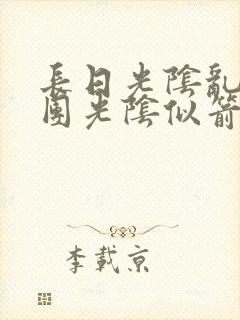 長日光陰亂
團光陰似箭
李載京